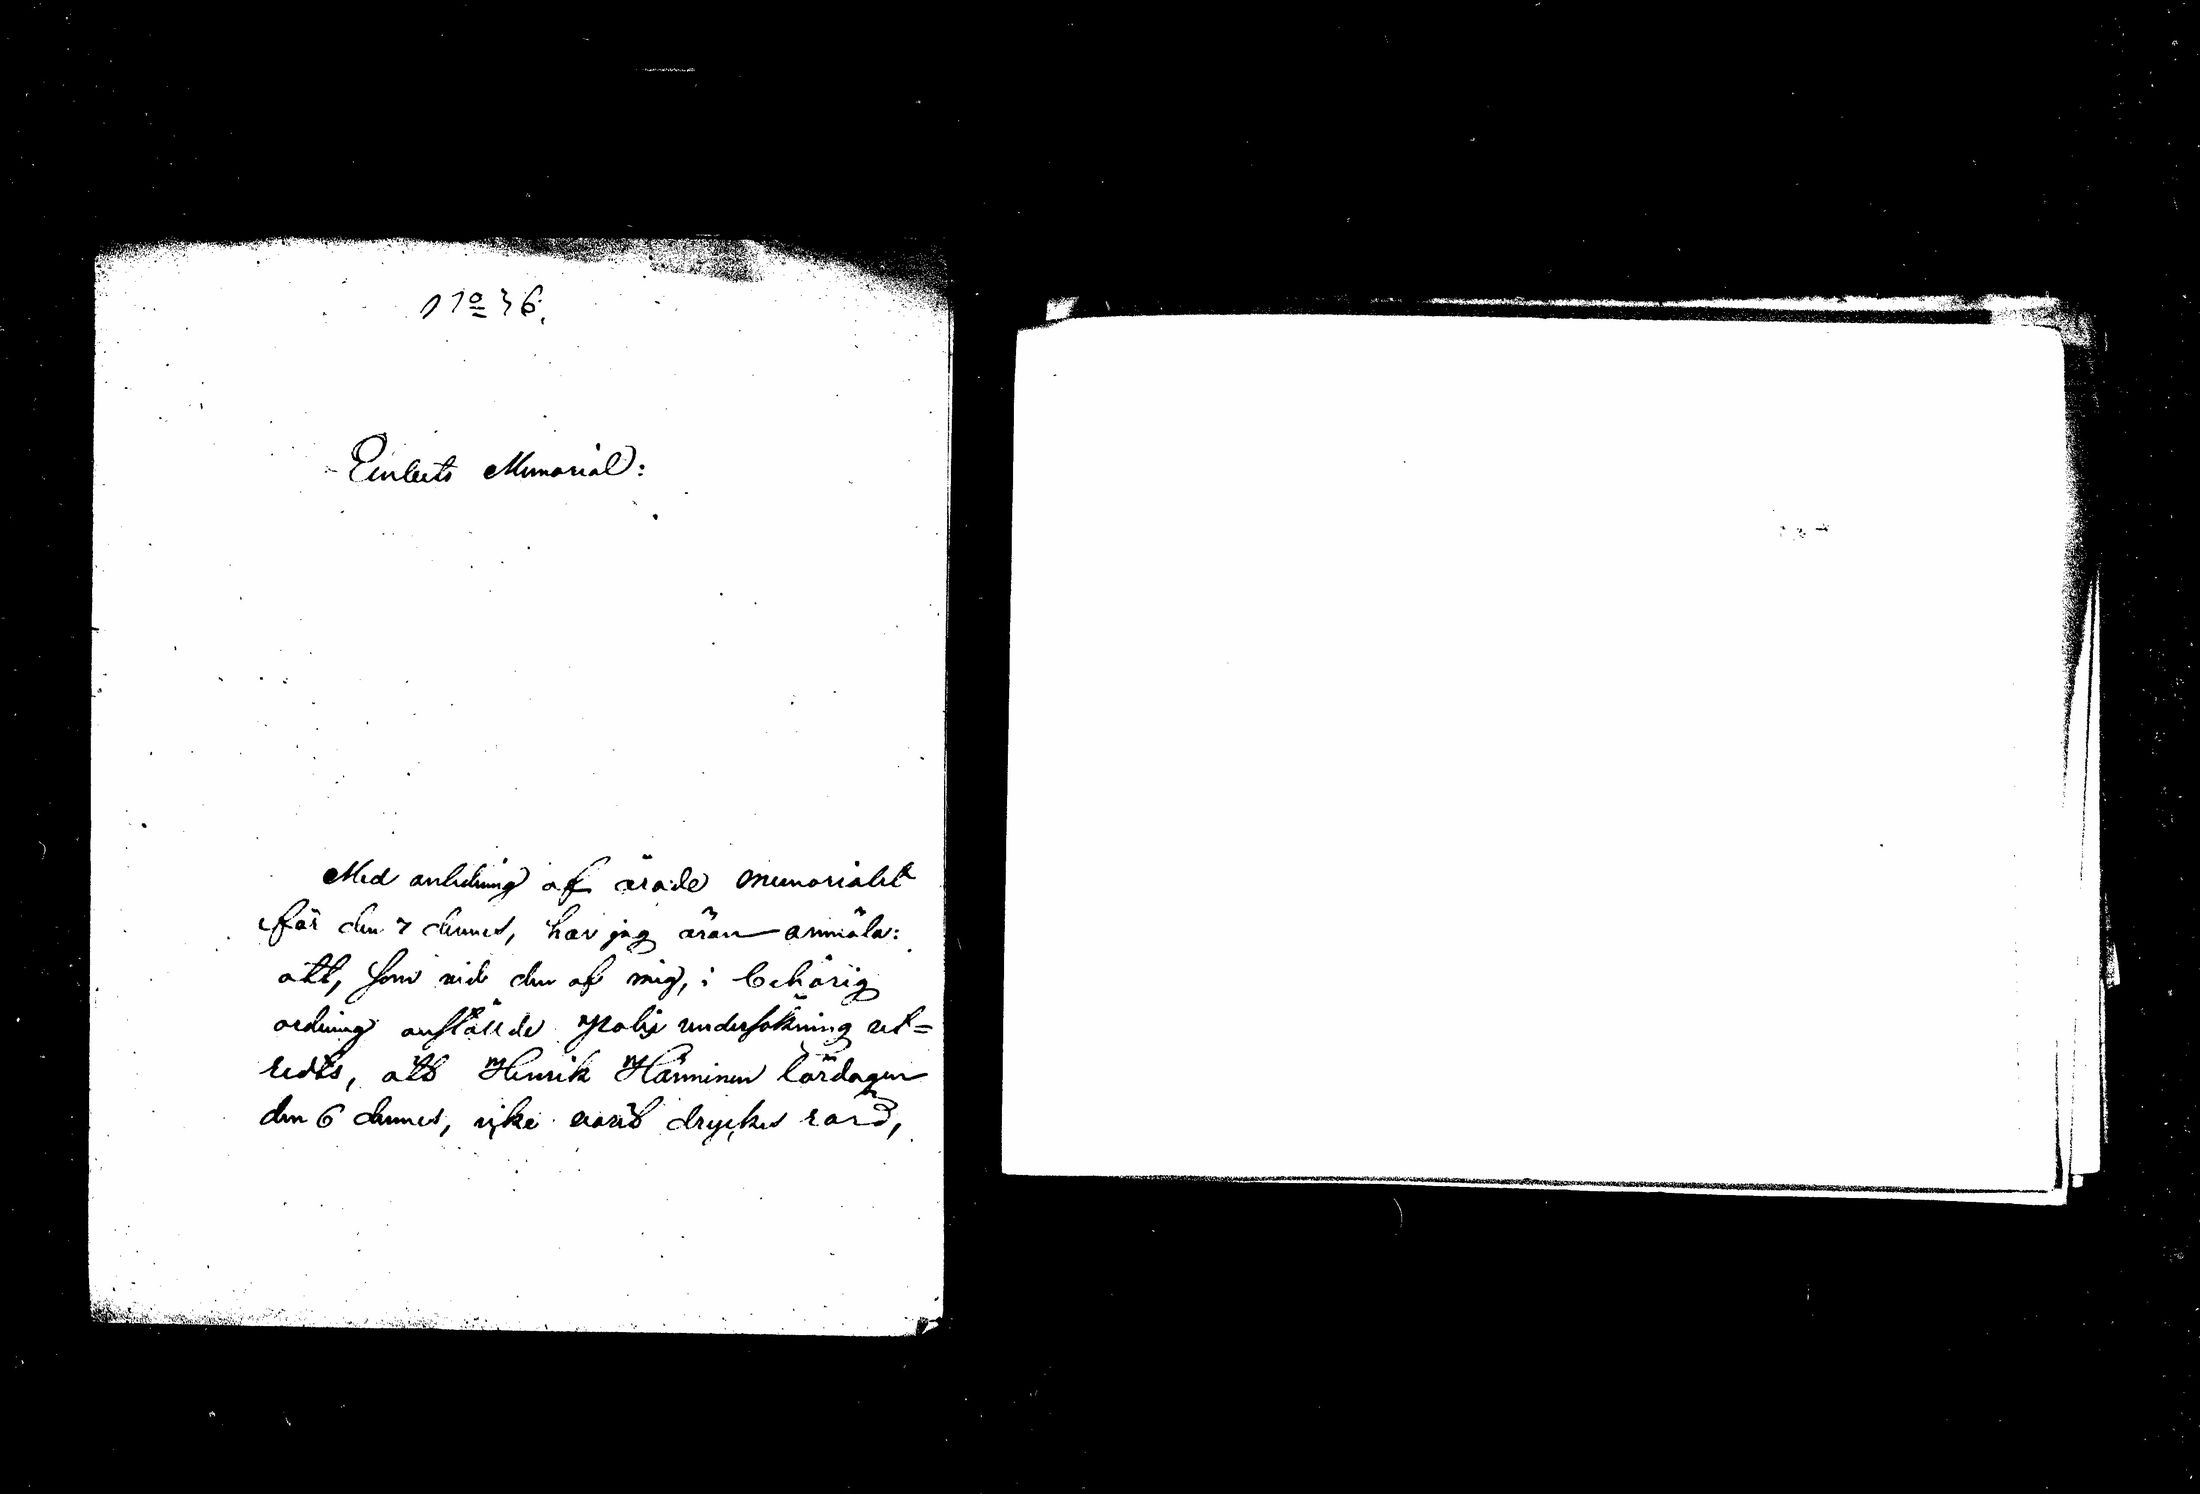 No 36.
Embets Memorial:
Med anledning af ärade memorialet
för den 7 dennes, har jag äran anmäla:
att, som vid den af mig, i behörig
ordning anstälde Polis undersökning ut=
redts, att Henrik Hänninen lördagen
den 6 dennes, icke varit dryckes rörd,